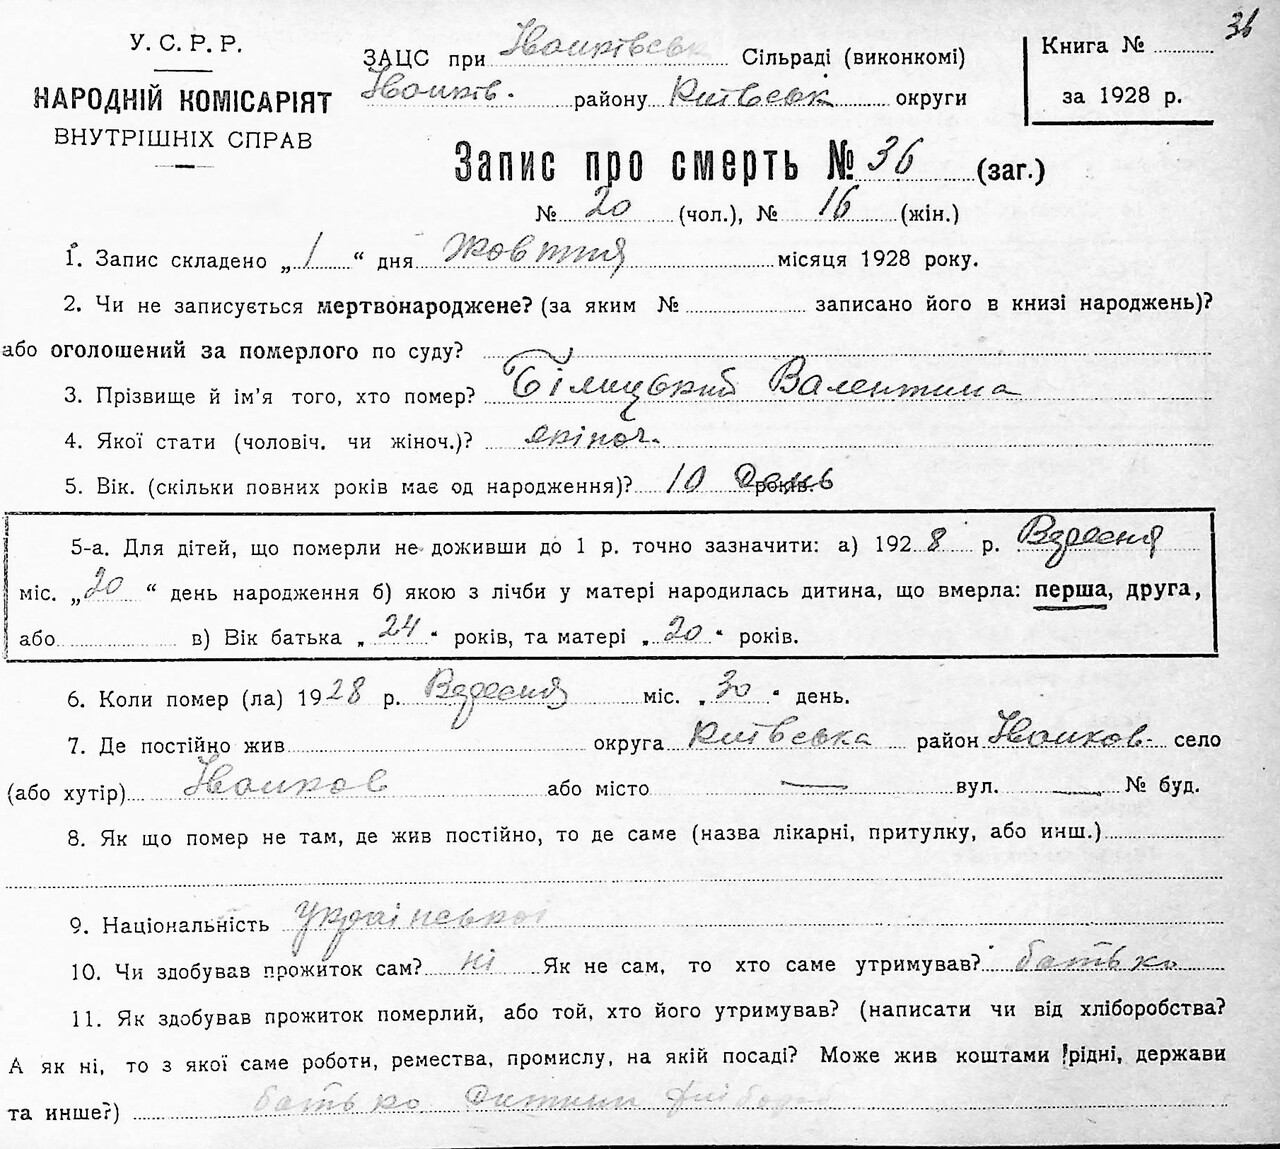 36
У. С. Р. Р.
НАРОДНІЙ КОМІСАРІЯТ
ВНУТРІШНІХ СПРАВ
ЗАЦС при Іванківськ Сільраді (виконкомі)
Іванків. району Київськ округи
Книга №
за 1928 р.
Запис про смерть № 36 (заг.)
№ 20 (чол.), № 16 (жін.)
1. Запис складено „ 1 “ дня Жовтня місяця 1928 року.
2. Чи не записується мертвонароджене? (за яким № записано його в книзі народжень)?
або оголошений за померлого по суду?
3. Прізвище й ім'я того, хто помер? Білицький Валентина
4. Якої стати (чоловіч. чи жіноч.)? жіноч.
5. Вік. (скільки повних років має од народження)? 10 день років.
5-а. Для дітей, що померли не доживши до 1 р. точно зазначити: а) 1928 р. Вересня
міс. „ 20 “ день народження б) якою з лічби у матері народилась дитина, що вмерла: перша, друга,
або в) Вік батька „ 24 “ років, та матері „ 20 “ років.
6. Коли помер (ла) 1928 р. Вересня міс. „ 30 “ день.
7. Де постійно жив округа Київська район Іванков- село
(або хутір) Іванков або місто — вул. — № буд.
8. Як що помер не там, де жив постійно, то де саме (назва лікарні, притулку, або инш.)
9. Національність Української
10. Чи здобував прожиток сам? ні Як не сам, то хто саме утримував? батько
11. Як здобував прожиток померлий, або той, хто його утримував? (написати чи від хліборобства?
А як ні, то з якої саме роботи, ремества, промислу, на якій посаді? Може жив коштами рідні, держави
та инше?) батько дитини